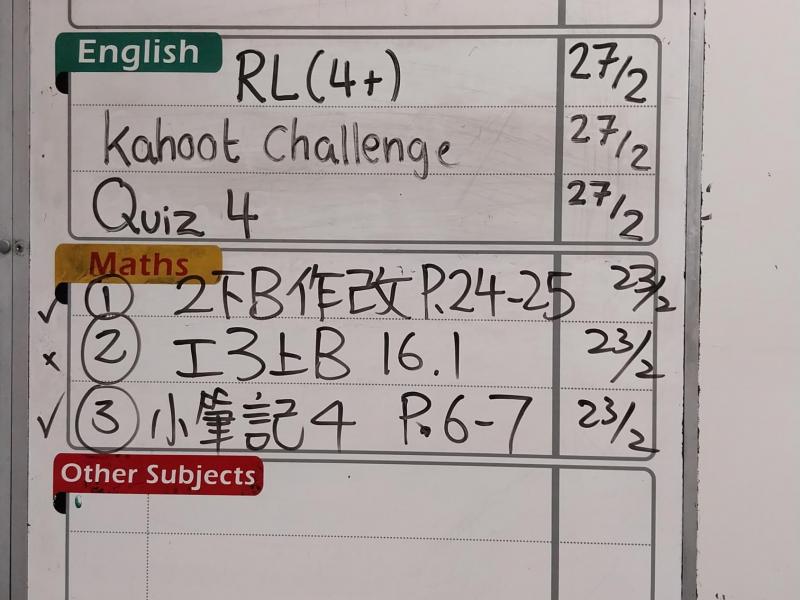 English
RL(4+) 27/2
Kahoot Challenge 27/2
Quiz 4 27/2
Maths
✓ ① 2下B作改 P.24-25 23/2
× ② 工3上B 16.1 23/2
✓ ③ 小筆記4 P.6-7 23/2
Other Subjects